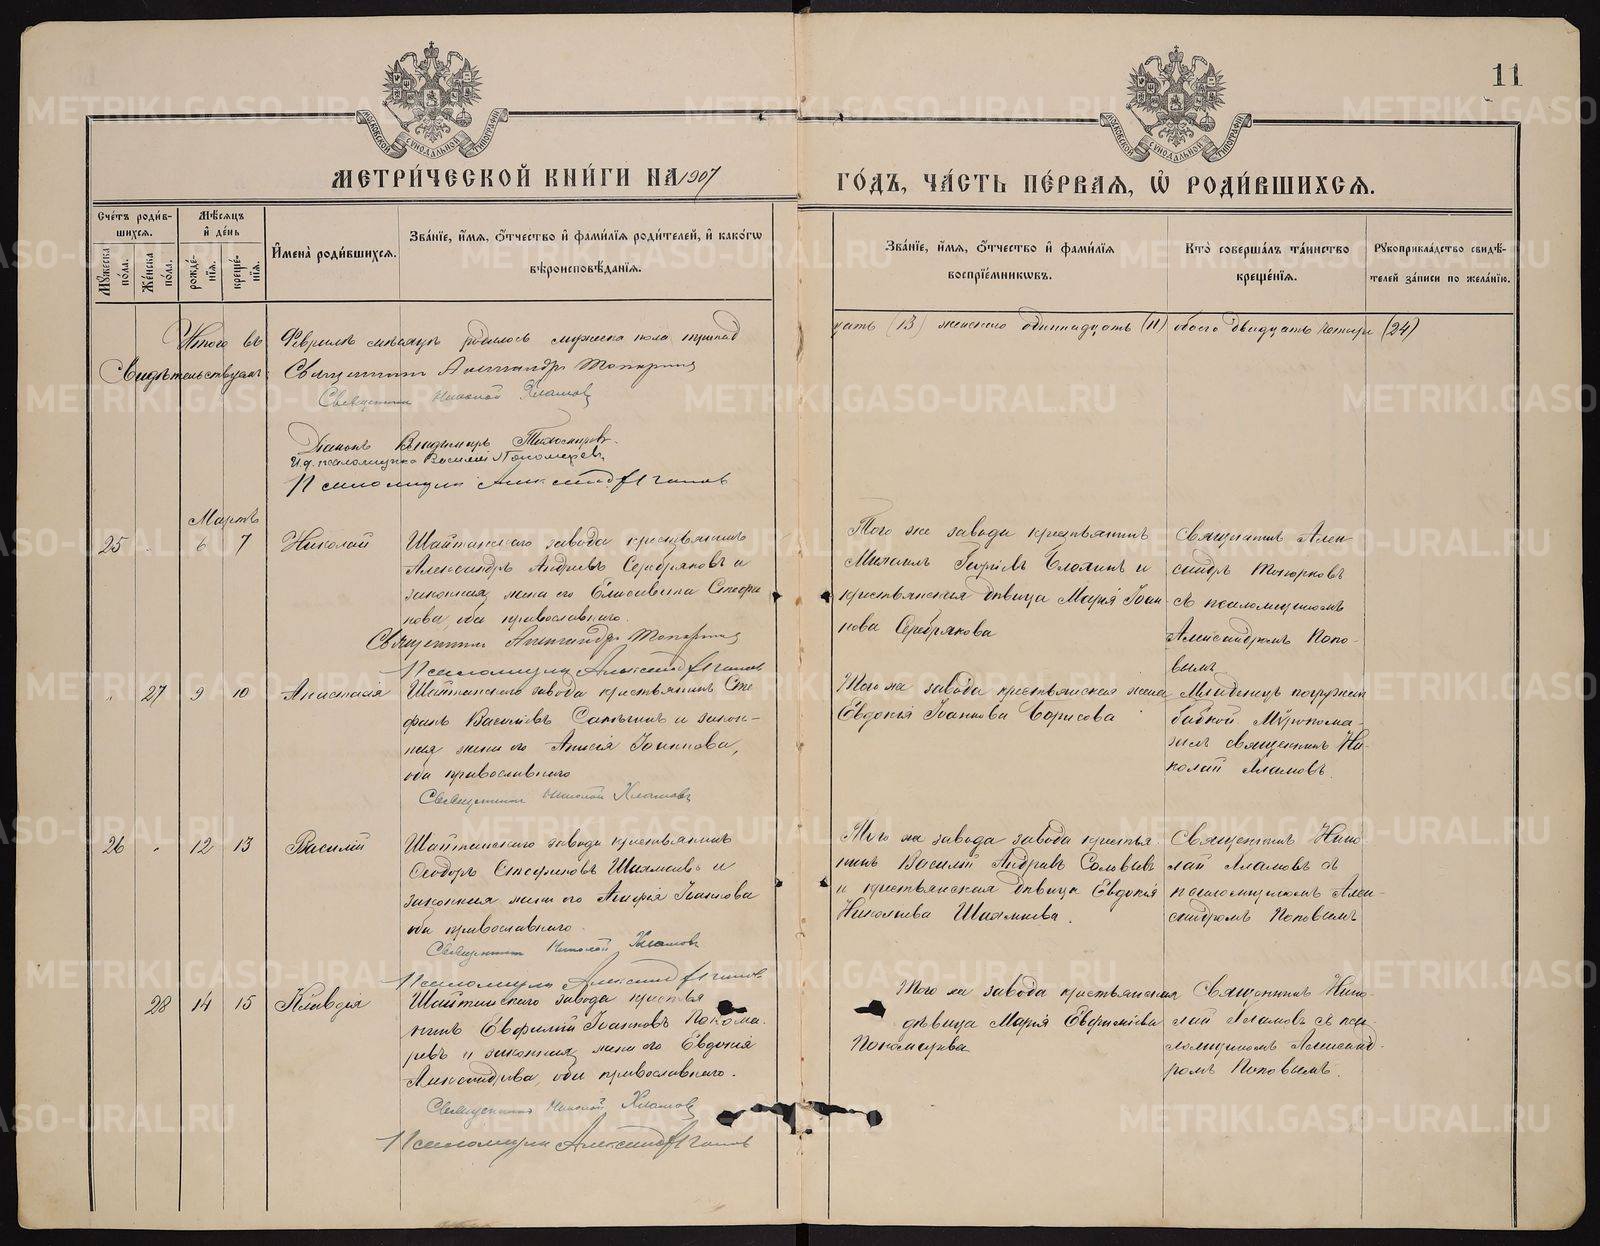 11
МЕТРИ́ЧЕСКОЙ КНИ́ГИ НА 1907
ГО́ДЪ, ЧА́СТЬ ПЕ́РВАЯ, Ѡ҆ РОДИ́ВШИХСЯ.
Сче́тъ роди́в-
шихся.
Мꙋ́жеска по́ла.
Же́нска по́ла.
Мѣ́сяцъ
и҆ де́нь
рожде́-
нїя.
креще́-
нїя.
И҆мена̀ роди́вшихся.
Зва́нїе, и҆́мя, ѻ҆́тчество и҆ фами́лїя роди́телей, и҆ како́гѡ
вѣроисповѣ́данїя.
Зва́нїе, и҆́мя, ѻ҆́тчество и҆ фами́лїя
воспрїе́мникѡвъ.
Кто̀ соверша́лъ та́инство
креще́нїя.
Рꙋкоприкла́дство свидѣ́-
телей за́писи по жела́нїю.
Итого въ Февралѣ мѣсяцѣ родилось мужска пола тринад
цать (13) женскаго одиннадцать (11) обоего двадцать четыре (24)
Свидѣтельствуемъ: Священникъ Александръ Топорковъ
Священникъ Николай
Діаконъ Владиміръ Тихомировъ.
И.д. псаломщика Василій Пономаревъ
Псаломщикъ Александръ Поповъ
Мартъ
25 6 7 Николай
Шайтанскаго завода крестьянинъ
Александръ Андреевъ Серебряковъ и
законная жена его Елисавета Стефа
нова, оба православнаго.
Священникъ Александръ Топорковъ
Псаломщикъ Александръ Поповъ
Того же завода крестьянинъ
Михаилъ и
крестьянская дѣвица Марія Іоан
нова Серебрякова
Священникъ Алек
сандръ Топорковъ
съ псаломщикомъ
Александромъ Попо-
вымъ
27 9 10 Анастасія
Шайтанскаго завода крестьянинъ Сте
фанъ Васильевъ и закон-
ная жена его Анисія Іоаннова,
оба православнаго
Священникъ Николай
Того же завода крестьянская жена
Евдокія Іоаннова Борисова
Младенецъ погруженъ
бабкой. Мѵропома-
залъ священникъ Ни-
колай
26 12 13 Василій
Шайтанскаго завода крестьянинъ
Ѳеодоръ Стефановъ и
законная жена его Агафія Іоаннова
оба православнаго.
Священникъ Николай
Псаломщикъ Александръ Поповъ
Того же завода завода крестья
нинъ Василій Андреевъ Соловьевъ
и крестьянская дѣвица Евдокія
Николаева
Священникъ Нико
лай съ
псаломщикомъ Алек-
сандромъ Поповымъ
28 14 15 Клавдія
Шайтанскаго завода крестья
нинъ Евфимій Іоанновъ Понома-
ревъ и законная жена его Евдокія
Александрова, оба православнаго.
Священникъ Николай
Псаломщикъ Александръ Поповъ
Того же завода крестьянская
дѣвица Марія Евфиміева
Пономарева
Священникъ Нико-
лай съ пса-
ломщикомъ Александ-
ромъ Поповымъ.
METRIKI.GASO-URAL.RU